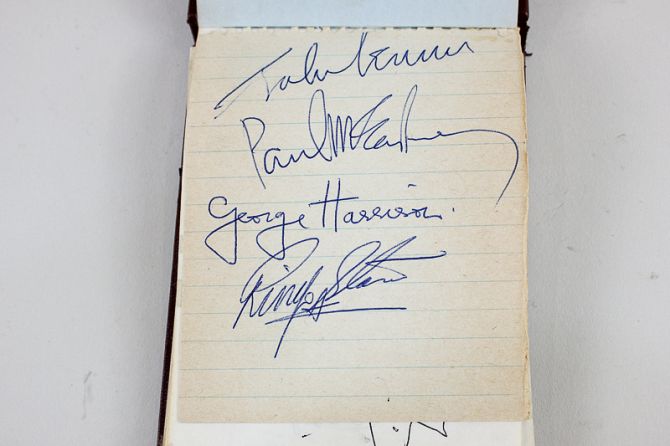 John Lennon
Paul McCartney
George Harrison.
Ringo Starr